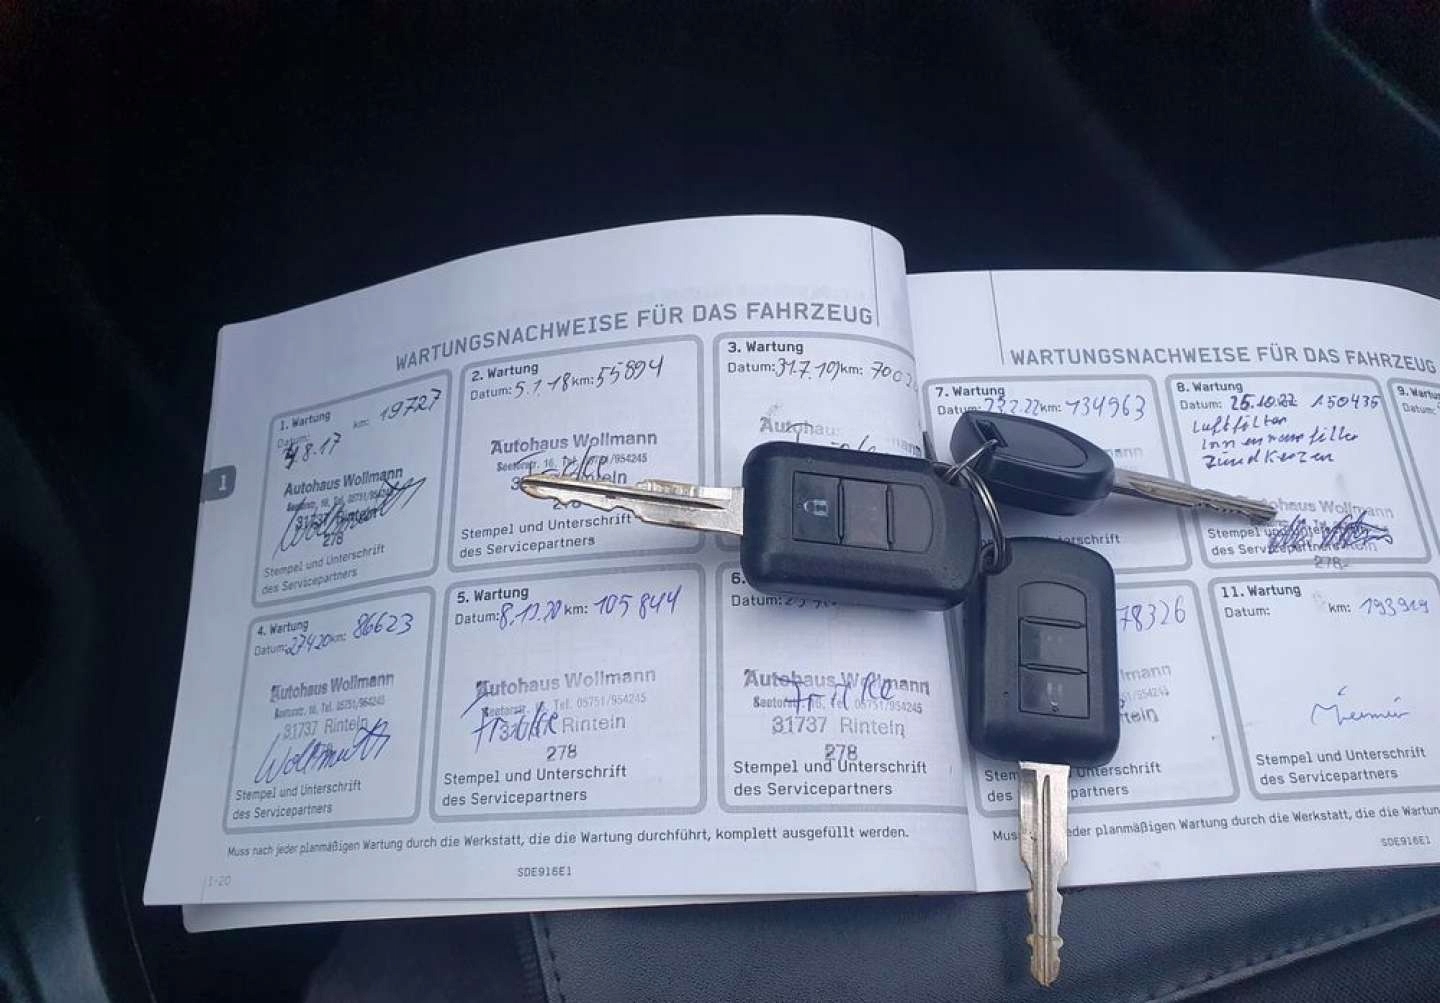 WARTUNGSNACHWEISE FÜR DAS FAHRZEUG
1. Wartung
Datum: 8.17 km: 19727
Autohaus Wollmann
Seetorstr. 16, Tel. 05751/954245
31737 Rinteln
278
Stempel und Unterschrift
des Servicepartners
2. Wartung
Datum: 5.1.18 km: 55894
Autohaus Wollmann
Seetorstr. 16, Tel. 05751/954245
Rinteln
Stempel und Unterschrift
des Servicepartners
3. Wartung
Datum: 31.7.19 km: 700
Autohau
4. Wartung
Datum: 27.4.20 km: 86623
Autohaus Wollmann
Seetorstr. 16, Tel. 05751/954245
31737 Rinteln
Stempel und Unterschrift
des Servicepartners
5. Wartung
Datum: 8.12.20 km: 105844
Autohaus Wollmann
Seetorstr. 16, Tel. 05751/954245
Rinteln
278
Stempel und Unterschrift
des Servicepartners
6.
Datum:
Autohaus Wollmann
Seetorstr. 16, Tel. 05751/954245
31737 Rinteln
278
Stempel und Unterschrift
des Servicepartners
Muss nach jeder planmäßigen Wartung durch die Werkstatt, die die Wartung durchführt, komplett ausgefüllt werden.
1
1-20
SDE916E1
WARTUNGSNACHWEISE FÜR DAS FAHRZEUG
7. Wartung
km: 134963
8. Wartung
Datum: 25.10.22 150435
Luftfilter
Innenraumfilter
Zündkerzen
ohaus Wollmann
Stempel und Unterschrift
des Servicepartners
278
9. Wartu
Datum:
78326
Stem Unterschrift
des partners
11. Wartung
Datum: km: 193919
Stempel und Unterschrift
des Servicepartners
Mus jeder planmäßigen Wartung durch die Werkstatt, die die Wartun
SDE916E1